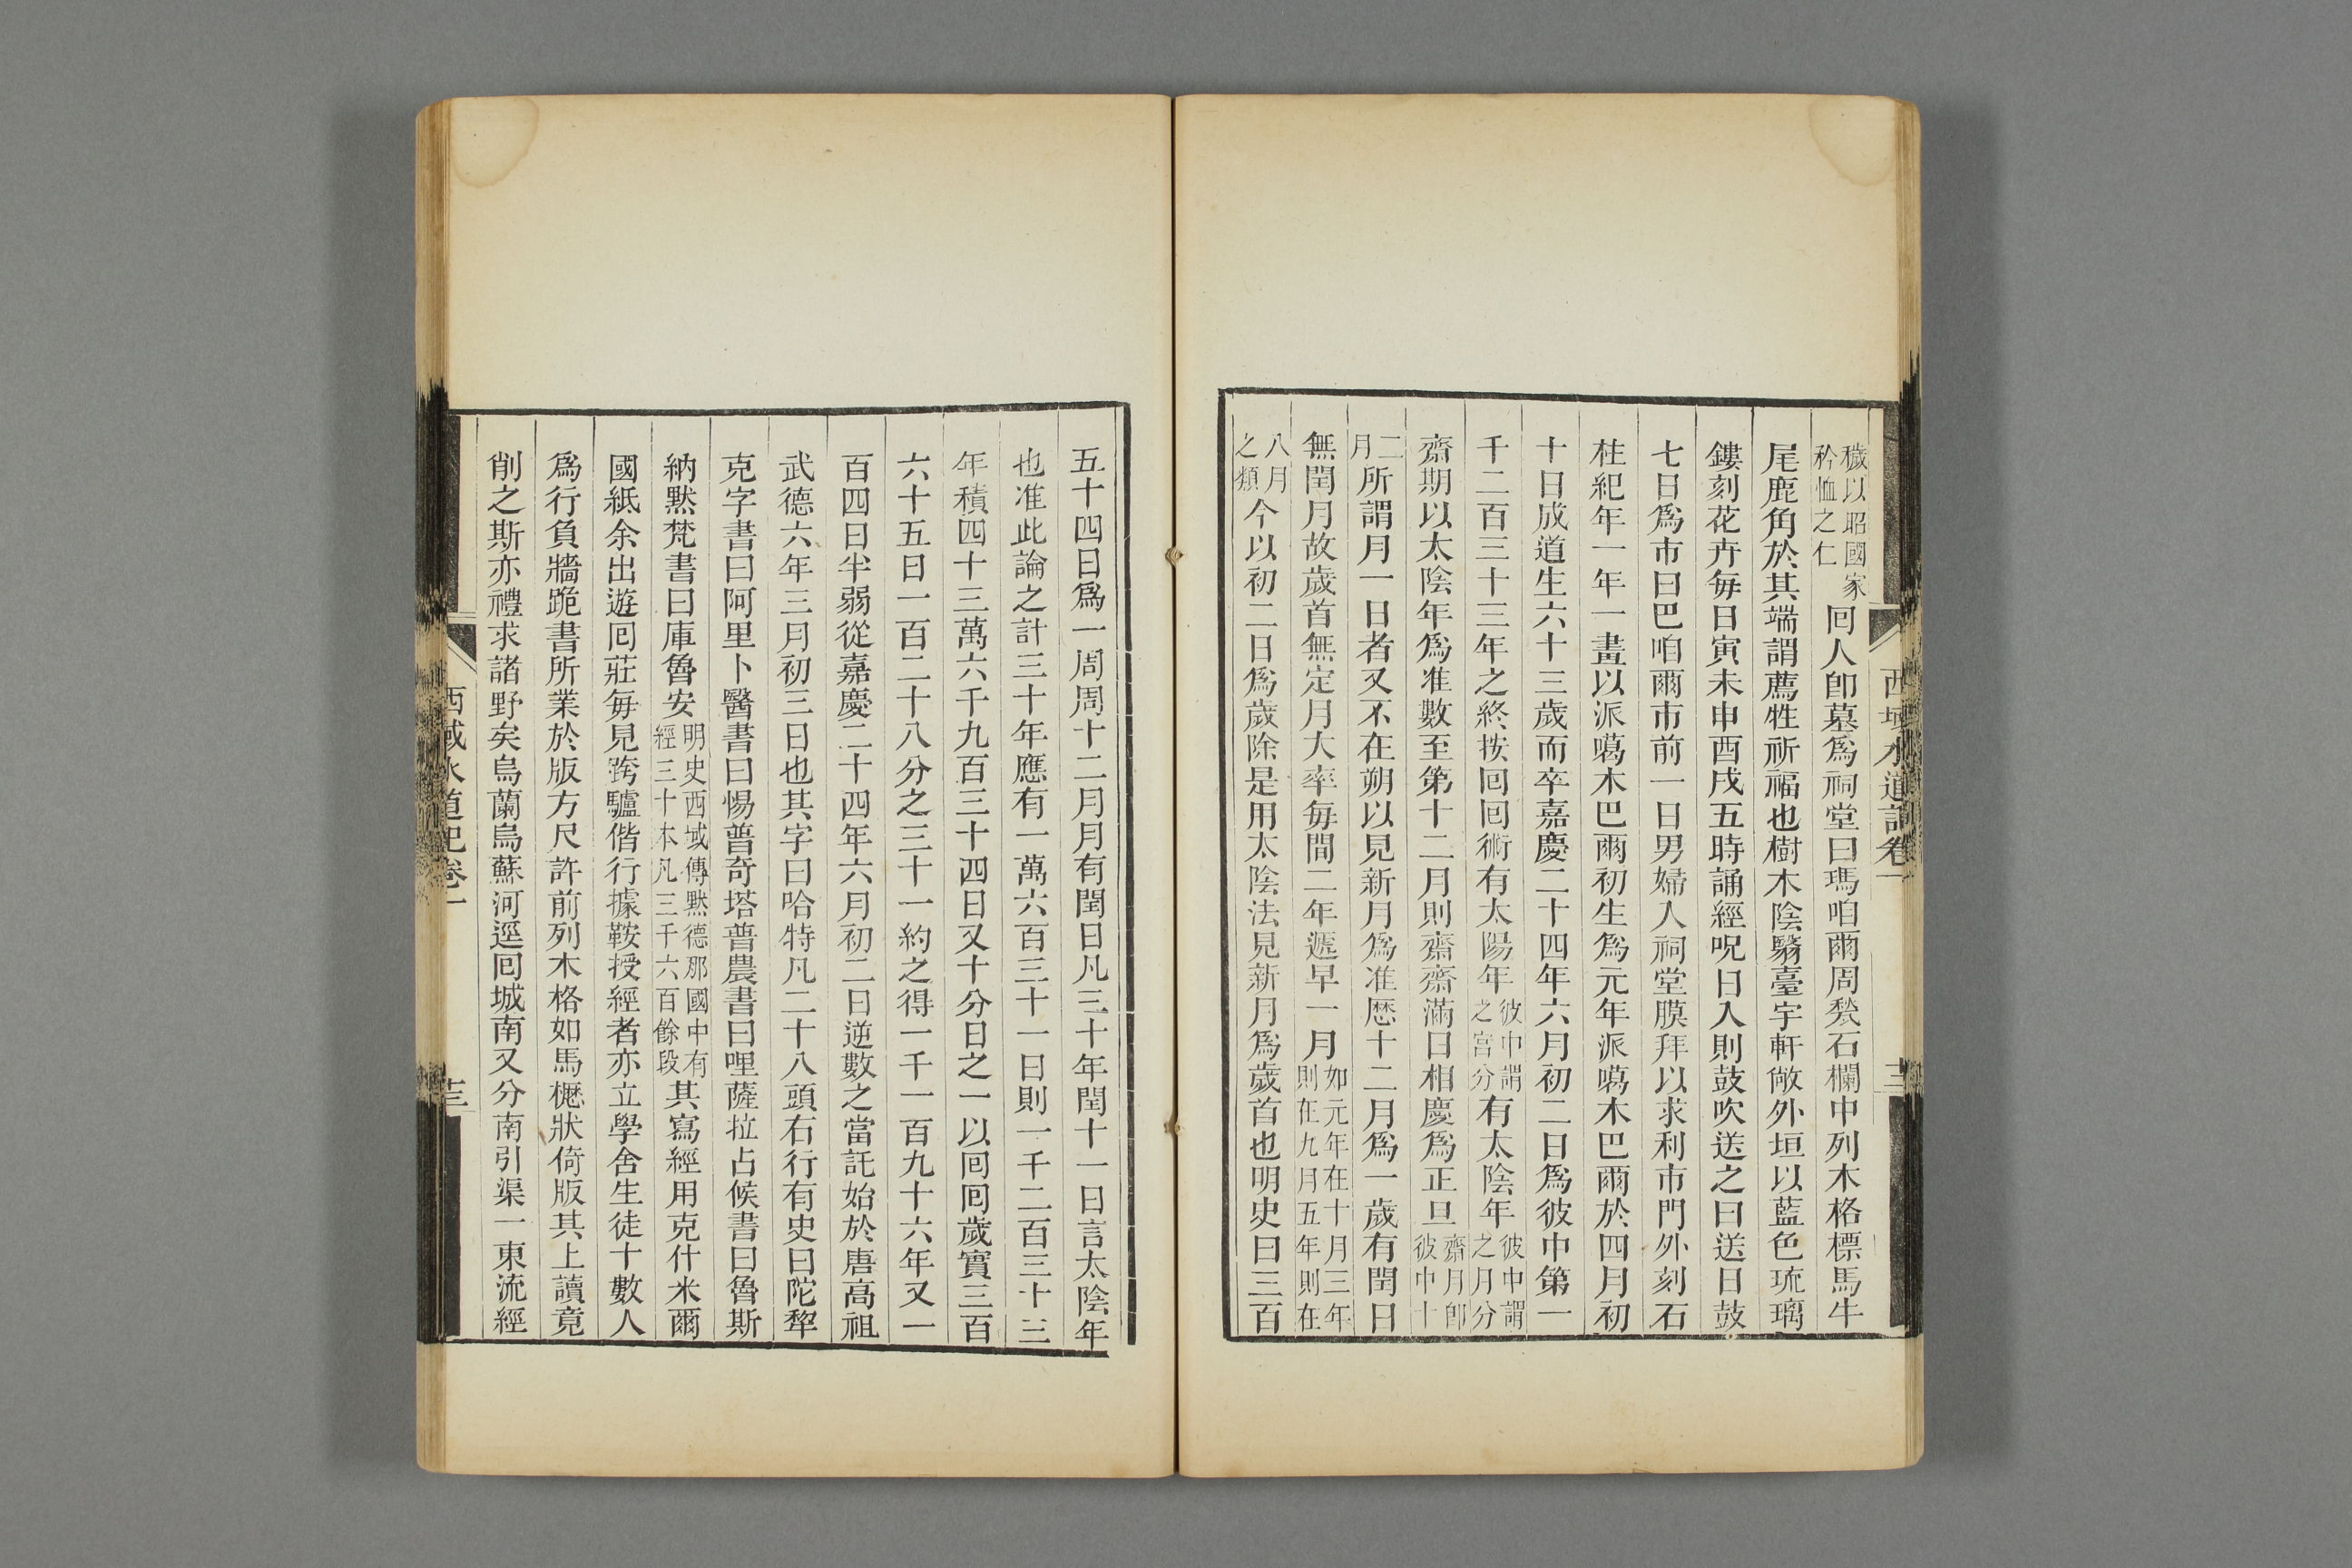 西域水道記卷一
穢以昭國家矜恤之仁回人卽墓爲祠堂曰瑪咱爾周甃石欄中列木格標馬牛
尾鹿角於其端謂薦牲祈福也樹木陰翳臺宇軒敞外垣以藍色琉璃
鏤刻花卉每日寅未申酉戌五時誦經呪日入則鼓吹送之曰送日鼓
七日爲市曰巴咱爾市前一日男婦入祠堂膜拜以求利市門外刻石
柱紀年一年一畫以派噶木巴爾初生爲元年派噶木巴爾於四月初
十日成道生六十三歲而卒嘉慶二十四年六月初二日爲彼中第一
千二百三十三年之終按回回術有太陽年彼中謂之宮分有太陰年彼中謂之月分
齋期以太陰年爲准數至第十二月則齋齋滿日相慶爲正旦齋月卽彼中十
二月所謂月一日者又不在朔以見新月爲准歷十二月爲一歲有閏日
無閏月故歲首無定月大率每間二年遞早一月如元年在十月三年則在九月五年則在
八月之類今以初二日爲歲除是用太陰法見新月爲歲首也明史曰三百
五十四日爲一周周十二月月有閏日凡三十年閏十一日言太陰年
也准此論之計三十年應有一萬六百三十一日則一千二百三十三
年積四十三萬六千九百三十四日又十分日之一以回回歲實三百
六十五日一百二十八分之三十一約之得一千一百九十六年又一
百四日半弱從嘉慶二十四年六月初二日逆數之當託始於唐高祖
武德六年三月初三日也其字曰哈特凡二十八頭右行有史曰陀犂
克字書曰阿里卜醫書曰惕普奇塔普農書曰哩薩拉占候書曰魯斯
納默梵書曰庫魯安明史西域傳默德那國中有經三十本凡三千六百餘段其寫經用克什米爾
國紙余出遊回莊每見跨驢偕行據鞍授經者亦立學舍生徒十數人
爲行負牆跪書所業於版方尺許前列木格如馬櫪狀倚版其上讀竟
削之斯亦禮求諸野矣烏蘭烏蘇河逕回城南又分南引渠一東流經
西域水道記卷一